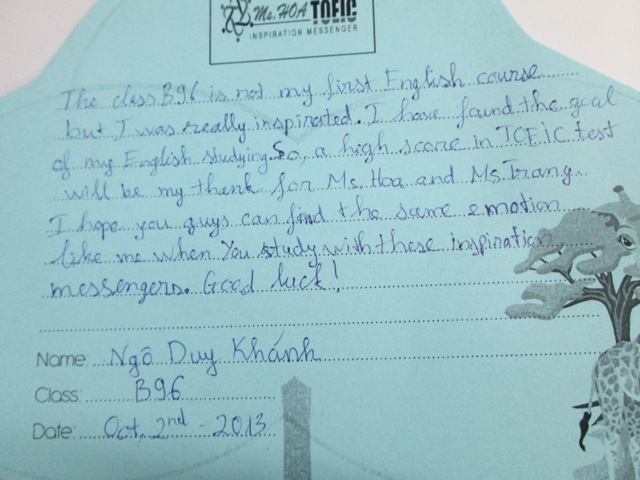 Ms. HOA TOEIC
INSPIRATION MESSENGER
The class B96 is not my first English course
but I was really inspirated. I have found the goal
of my English studying. So, a high score in TOEIC test
will be my thank for Ms. Hoa and Ms. Trang.
I hope you guys can find the same emotion
like me when You study with these inspiration
messengers. Good luck!
Name: Ngô Duy Khánh
Class: B96
Date: Oct, 2nd - 2013